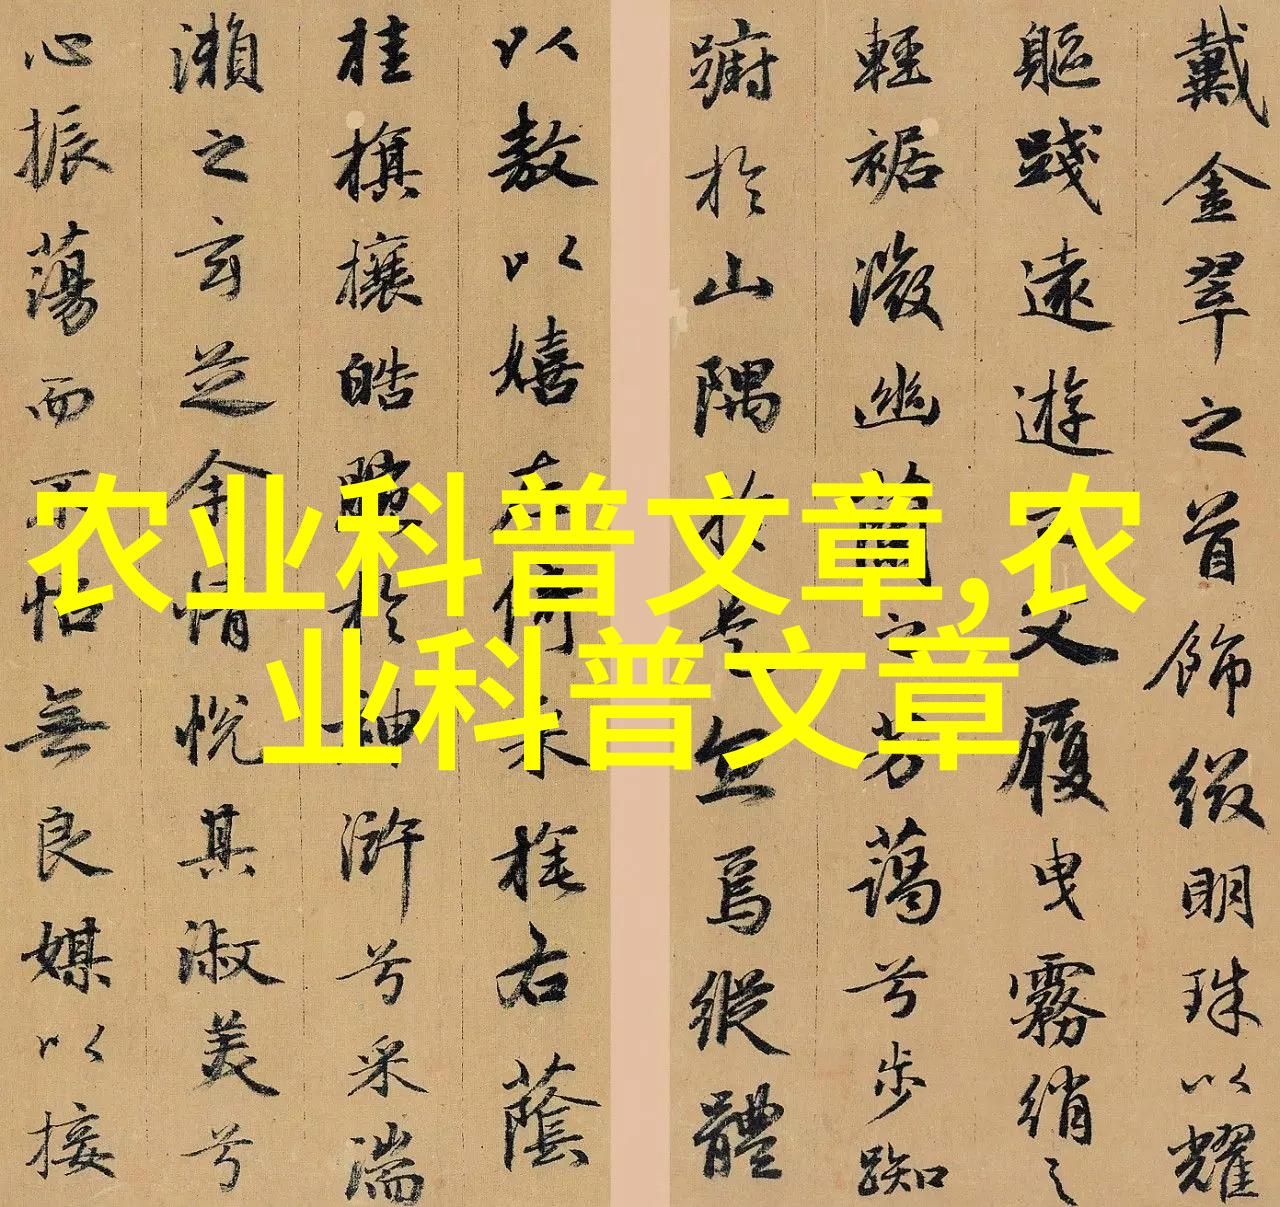 戴金翠之首飾綴明珠以耀
軀踐遠遊之文履曳霧綃之
輕裾微幽蘭之芳藹兮步踟
躕於山隅於是忽焉縱體
以敖以嬉左倚采旄右蔭
桂旗攘皓腕於神滸兮采湍
瀨之玄芝余情悅其淑美兮
心振蕩而不怡無良媒以接
农业科普文章,农
业科普文章